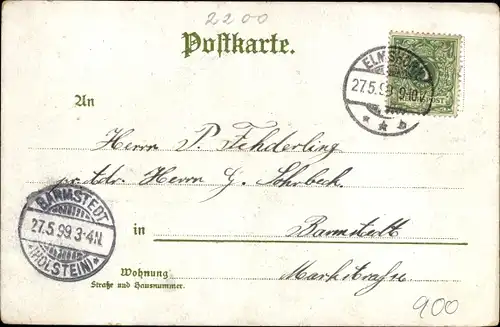 2200
Postkarte.
ELMSHORN
27.5.99 9-10V.
* * b
POST
An
Herrn P. Fehderling
pr. Adr. Herrn G. Sohrbeck.
BARMSTEDT
27.5.99 3-4N.
*(HOLSTEIN)*
in Barmstedt
Wohnung Markstraße
Straße und Hausnummer.
900